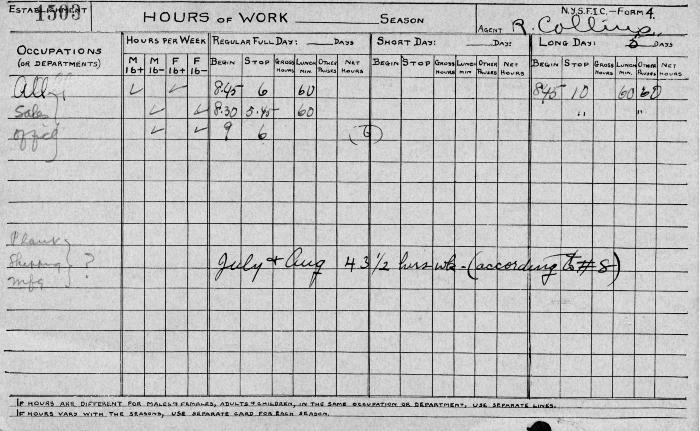 ESTABLISHMENT 1503 HOURS OF WORK SEASON N.Y.S.F.I.C.-FORM 4.
AGENT R. Collins
OCCUPATIONS (OR DEPARTMENTS) HOURS PER WEEK REGULAR FULL DAY: DAYS SHORT DAY: DAYS LONG DAY: 5 DAYS
M 16+ M 16- F 16+ F 16- BEGIN STOP GROSS HOURS LUNCH MIN. OTHER PAUSES NET HOURS BEGIN STOP GROSS HOURS LUNCH MIN. OTHER PAUSES NET HOURS BEGIN STOP GROSS HOURS LUNCH MIN. OTHER PAUSES NET HOURS
All ✓ ✓ 8.45 6 60 8.45 10 60 60
Sales ✓ ✓ 8.30 5.45 60 " "
Office ✓ ✓ 9 6
Plant
Shipping ?
Mfg
July + Aug 43 1/2 hurs wk - (according to # 8)
IF HOURS ARE DIFFERENT FOR MALES & FEMALES, ADULTS & CHILDREN, IN THE SAME OCCUPATION OR DEPARTMENT, USE SEPARATE LINES.
IF HOURS VARY WITH THE SEASONS, USE SEPARATE CARD FOR EACH SEASON.